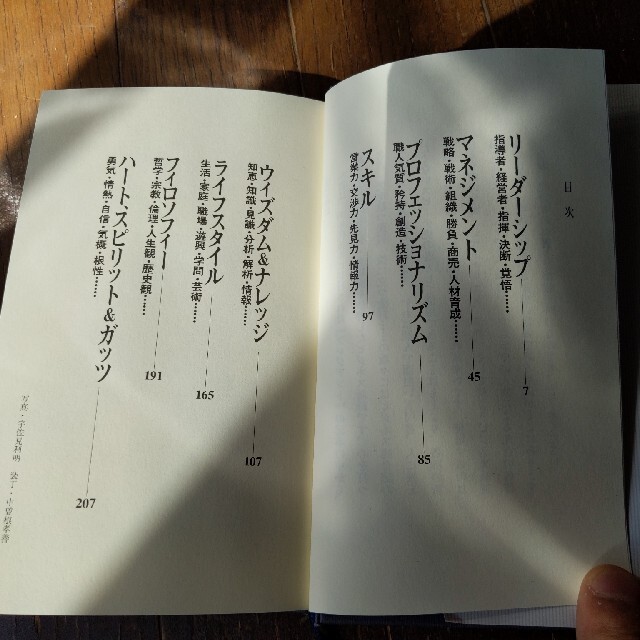 目次
リーダーシップ
指導者・経営者・指揮・決断・覚悟……
7
マネジメント
戦略・戦術・組織・勝負・商売・人材育成……
45
プロフェッショナリズム
職人気質・矜持・創造・技術……
85
スキル
営業力・交渉力・先見力・情報力……
97
ウィズダム&ナレッジ
知恵・知識・見識・分析・解析・情報……
107
ライフスタイル
生活・家庭・職場・遊興・学問・芸術……
165
フィロソフィー
哲学・宗教・倫理・人生観・歴史観……
191
ハート、スピリット&ガッツ
勇気・情熱・自信・気概・根性……
207
写真・宇佐見利明